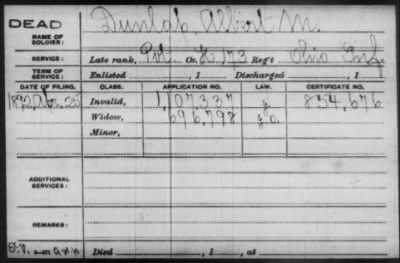 DEAD
NAME OF SOLDIER: Dunlab, Albert M.
SERVICE: Late rank, Pvt. Co. K, 173 Reg't Ohio Inf.
TERM OF SERVICE: Enlisted , 1 Discharged , 1
DATE OF FILING. CLASS. APPLICATION NO. LAW. CERTIFICATE NO.
1892, Apr. 25 Invalid, 1,107,337 J. 854,676
Widow, 696,798 J.O.
Minor,
ADDITIONAL SERVICES:
REMARKS:
Died , 1 , at